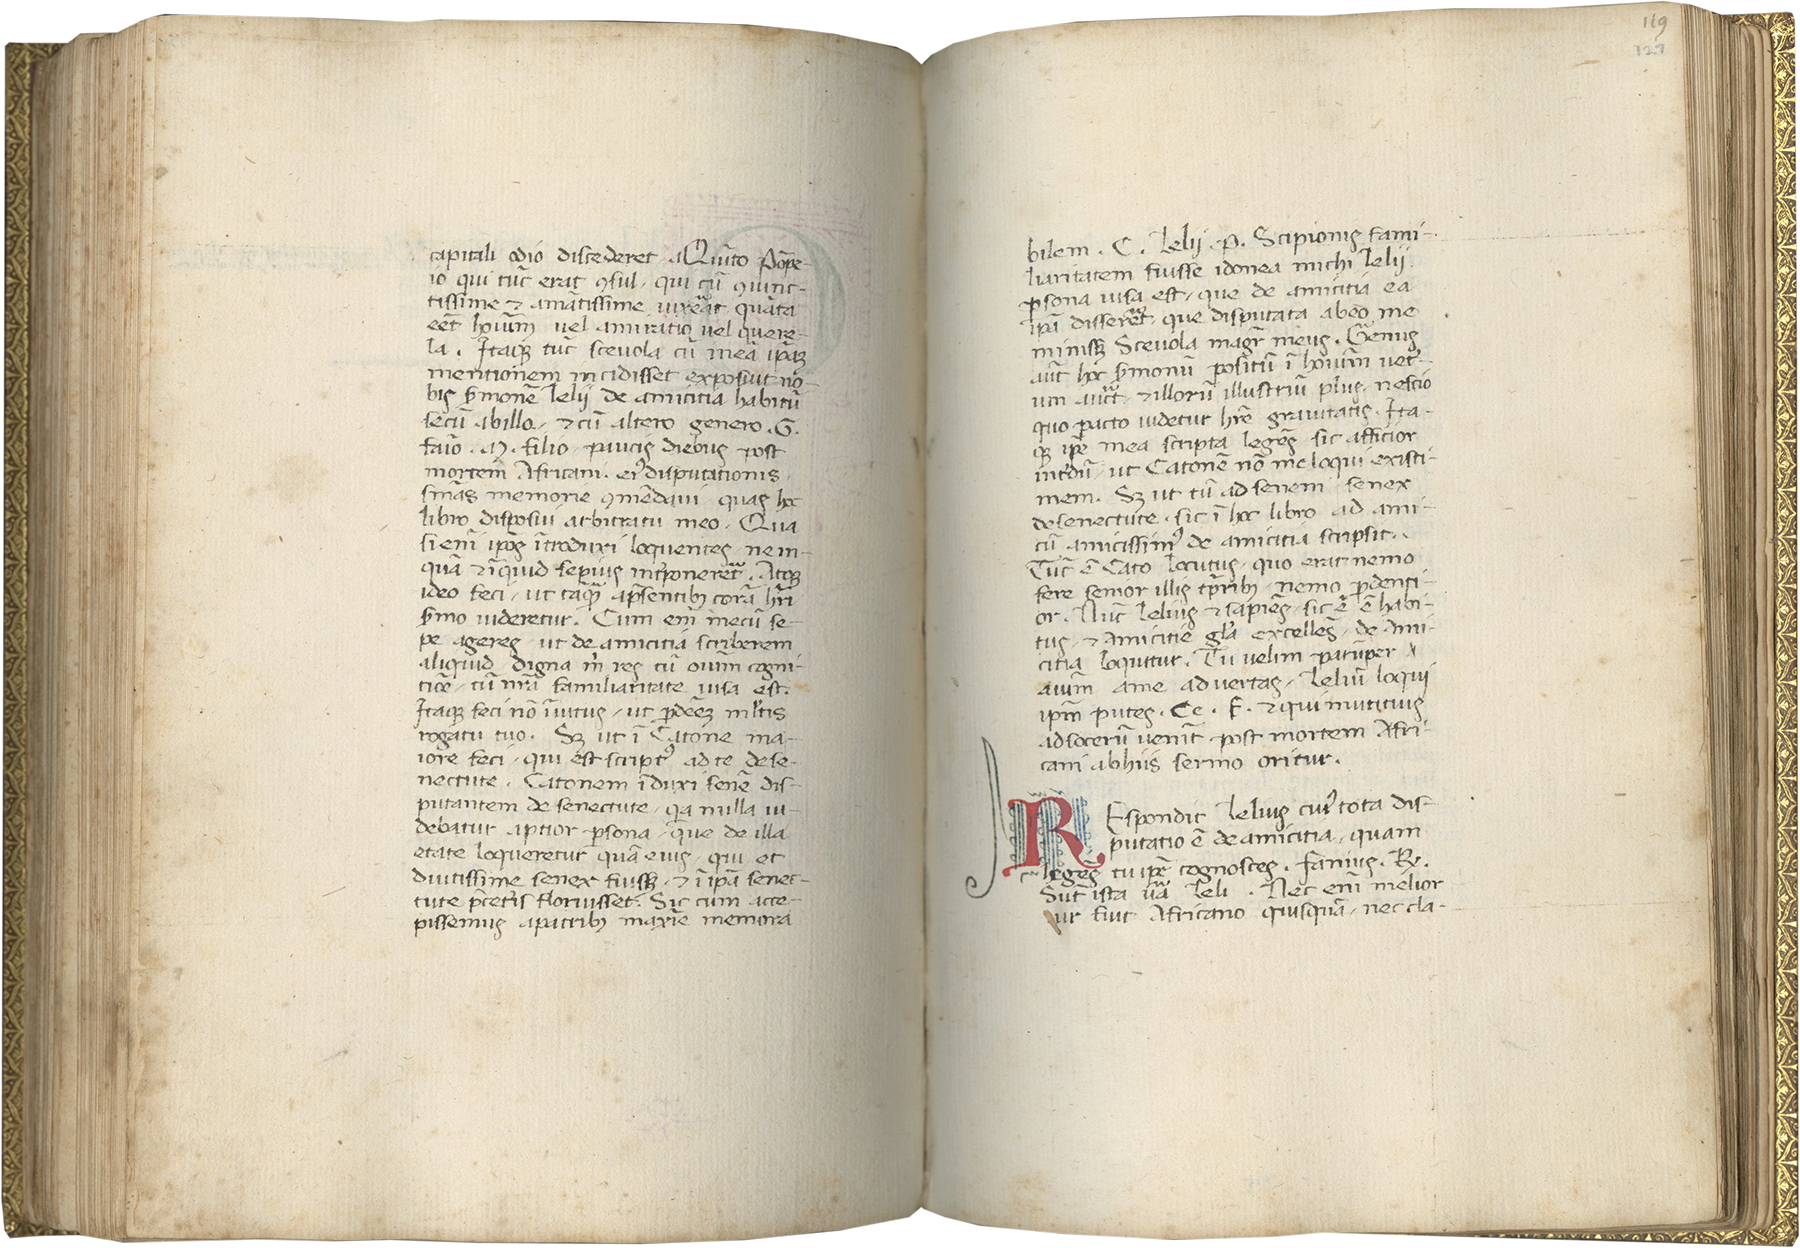 capitali odio discederet · A Quīto Pōpe-
io qui tūc erat ꝯsul · qui cū ꝯiunc-
tissime ⁊ amātissime vixeāt quāta
eēt hoīuꝫ vel amiratio vel quere-
la . Itaqꝫ tūc scevola cū meā ipāꝫ
mentionem incidisset exposuit no-
bis s̄monē lelij de amicitia habitū
secū abillo · ⁊ cū altero genero . G .
faīo . M . filio · paucis diebus post
mortem Africani . eiꝰ disputationis
sn̄ias memorie ꝯmēdavi · quas hoc
libro disposui arbitratu meo · Qua
si eni ipōs ītroduxi loquentes · ne in-
quā ⁊ īquid sepius int̄poneret̄ . Atqꝫ
ideo feci · ut tāqꝫ ap̄sentibꝫ corā h̄ri
s̄mo videretur . Cum eni mecū se-
pe ageres · ut de amicitia scriberem
aliquid digna m̄ res cū oīum cogni-
tiōe · tū nr̄a familiaritate visa est .
Itaqꝫ feci nō īvitus · ut ꝓdeēꝫ ml̄tis
rogatu tuo . Sꝫ ut ī Catone ma-
iore feci · qui est scriptꝰ ad te de se-
nectute . Catonem īduxi senē dis-
putantem de senectute · qa nulla vi-
debatur aptior ꝑsona · que de illa
etate loqueretur quā eius · qui et
diutissime senex fuisꝫ · ⁊ ī ipā senec-
tute p̄cet̄is floruisset . Sic cum acce-
pissemus apatribꝫ maxīe memora
119
127
bilem . C . Lelij . P . Scipionis fami-
liaritatem fuisse idonea michi lelij
ꝑsona visa est · que de amicitia ea
ipā disseret̄ · que disputata abeo me
minisꝫ Scevola magr̄ meus . Genus
aūt hoc s̄monū positū ī hoīum vet̄-
um auct̄ · ⁊ illorū illustriū plus nescio
quo pacto videtur hr̄e gravitatis . Ita-
qꝫ ipē mea scripta legēs sic afficior
int̄dū · ut Catonē nō me loqui existi-
mem . Sꝫ ut tū ad senem senex
de senectute · sic ī hoc libro ad ami-
cū amicissimꝰ de amicitia scripsit .
Tūc ē Cato locutus · quo erat nemo
fere senior illis tꝑribꝫ · nemo prudenti-
or . Nūc lelius ⁊ sapiēs · sic ē ē habi-
tus · ⁊ amicitie gl̄a excellēs · de ami-
citia loquitur . Tu velim parumper
aīum ame advertas · leliū loqui
ipm̄ putes . Ce . F . ⁊ qui mutitius
ad socerū venīt post mortem Afri-
cani abhiis sermo oritur .
REspondit lelius cuiꝰ tota dis-
putatio ē de amicitia · quam
legēs tu ipē cognosces . fanius . Rr .
Sūt ista vā leli . Nec eni melior
vir fuit Africano quisquā · nec cla-